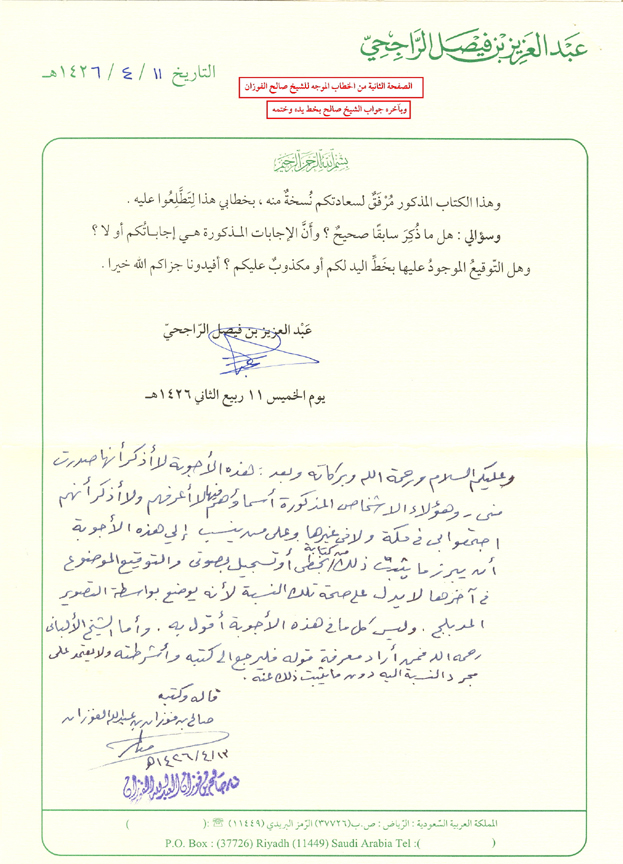 عَبْد العَزيز بْن فَيْصَل الرَّاجِحِيّ
التاريخ ١١ / ٤ / ١٤٢٦هـ
الصفحة الثانية من الخطاب الموجه للشيخ صالح الفوزان
وبآخره جواب الشيخ صالح بخط يده وختمه
بسم الله الرحمن الرحيم
وهذا الكتاب المذكور مُرْفَقٌ لسعادتكم نُسخةٌ منه ، بخطابي هذا لِتَطَّلِعُوا عليه .
وسؤالي : هل ما ذُكِرَ سابقًا صحيحٌ ؟ وأنَّ الإجابات المذكورة هي إجاباتُكم أو لا ؟
وهل التّوقيعُ الموجودُ عليها بخَطِّ اليد لكم أو مكذوبٌ عليكم ؟ أفيدونا جزاكم الله خيرا .
عَبْد العزيز بن فيصل الرّاجحيّ
يوم الخميس ١١ ربيع الثاني ١٤٢٦هـ
وعليكم السلام ورحمة الله وبركاته وبعد : هذه الأجوبة لا أذكر أنها صدرت
مني - وهؤلاء الأشخاص المذكورة أسماؤهم فيها لا أعرفهم ولا أذكر أنهم
اجتمعوا بي في مكة ولا في غيرها وعلى من ينسب إلي هذه الأجوبة
أن يبرز ما يثبت ذلك من كتابة بخطي أو تسجيل بصوتي والتوقيع الموضوع
في آخرها لا يدل على صحة تلك النسبة لأنه يوضع بواسطة التصوير
المدبلج . وليس كل ما في هذه الأجوبة أقول به . وأما الشيخ الألباني
رحمه الله فمن أراد معرفة قوله فليرجع إلى كتبه وأشرطته ولا يعتمد على
مجرد النسبة إليه دون ما يثبت ذلك عنه .
قاله وكتبه
صالح بن فوزان بن عبدالله الفوزان
١٤٢٦/٤/١٣هـ
صالح بن فوزان العبدالله الفوزان
المملكة العربية السّعودية : الرّياض : ص.ب(٣٧٧٢٦) الرّمز البريدي (١١٤٤٩) ☏ :( )
P.O. Box : (37726) Riyadh (11449) Saudi Arabia Tel :( )